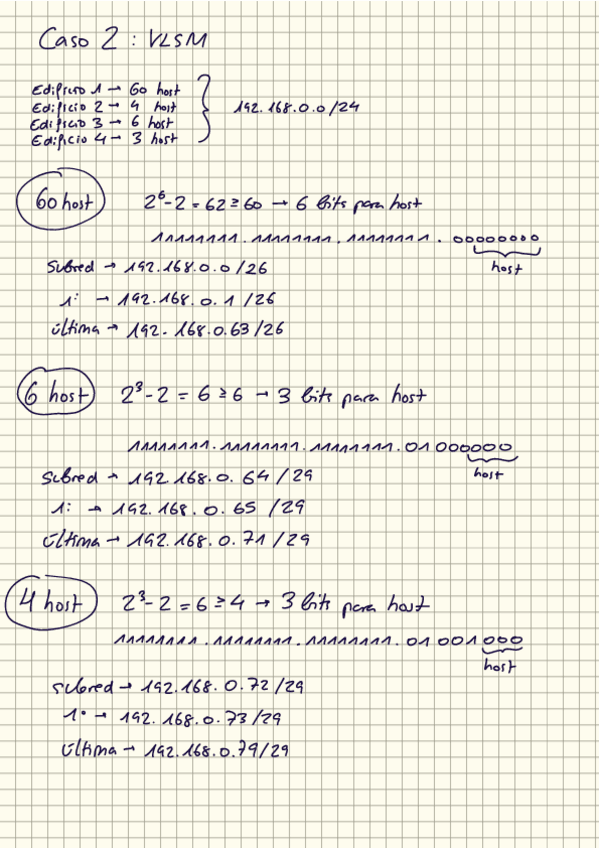 Caso 2 : VLSM
Edificio 1 → 60 host
Edificio 2 → 4 host
Edificio 3 → 6 host
Edificio 4 → 3 host
192.168.0.0/24
60 host
2⁶-2 = 62 ≥ 60 → 6 bits para host
11111111.11111111.11111111.00000000
host
Subred → 192.168.0.0/26
1: → 192.168.0.1/26
última → 192.168.0.63/26
6 host
2³-2 = 6 ≥ 6 → 3 bits para host
11111111.11111111.11111111.01000000
host
Subred → 192.168.0.64/29
1: → 192.168.0.65/29
última → 192.168.0.71/29
4 host
2³-2 = 6 ≥ 4 → 3 bits para host
11111111.11111111.11111111.01001000
host
subred → 192.168.0.72/29
1º → 192.168.0.73/29
última → 192.168.0.79/29